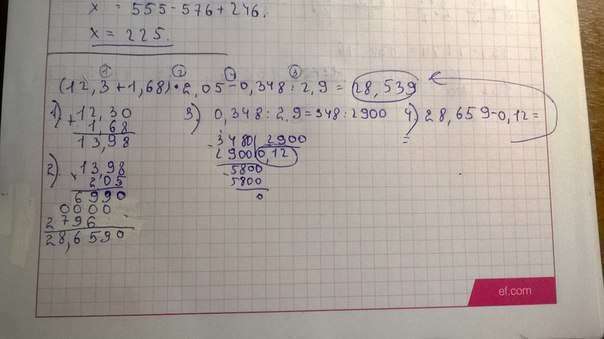 x = 555-576+246.
x = 225.
① ② ④ ③
(12,3+1,68)·2,05-0,348:2,9=28,539
1) 12,30
+ 1,68
13,98
2) 13,98
2,05
6990
0000
2796
28,6590
3) 0,348:2,9=348:2900
3480 2900
2900 0,12
-5800
5800
0
4) 28,659-0,12=
=
ef.com